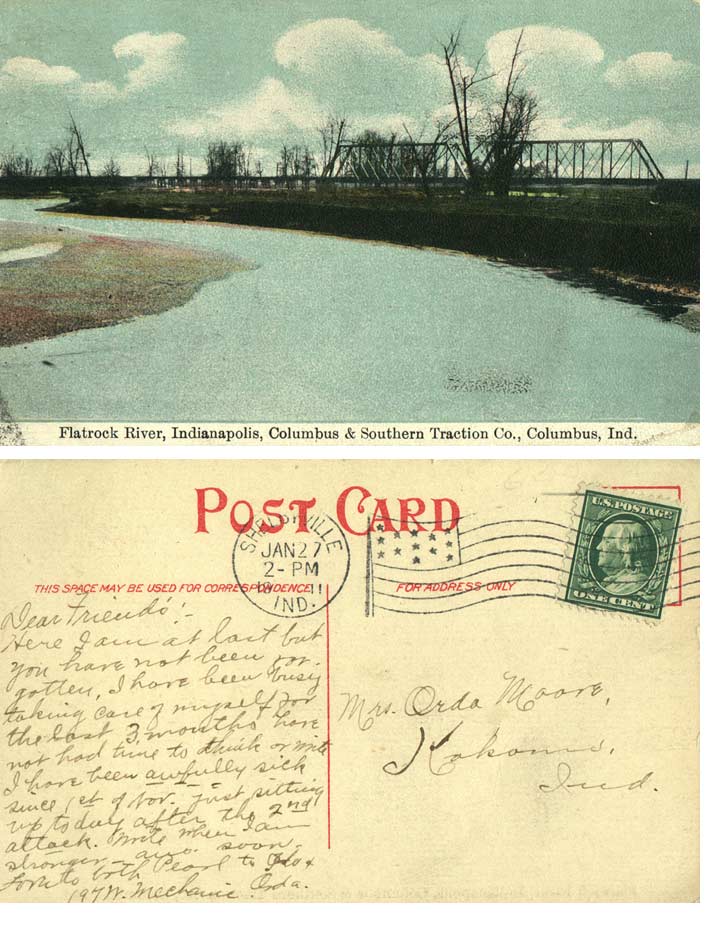 Flatrock River, Indianapolis, Columbus & Southern Traction Co., Columbus, Ind.
POST CARD
SHELBYVILLE
JAN 27
2-PM
11
IND.
U.S. POSTAGE
ONE CENT
THIS SPACE MAY BE USED FOR CORRESPONDENCE
FOR ADDRESS ONLY
Dear Friends:-
Here I am at last but
you have not been for-
gotten, I have been busy
taking care of myself for
the last 3 months have
not had time to think or write
I have been awfully sick
since 1st of Nov. just sitting
up today after the 2nd
attack. Write when I am
stronger - soon.
Love to both Pearl to &
197 W. Mechanic. Orda.
Mrs. Orda Moore,
Kokomo,
Ind.